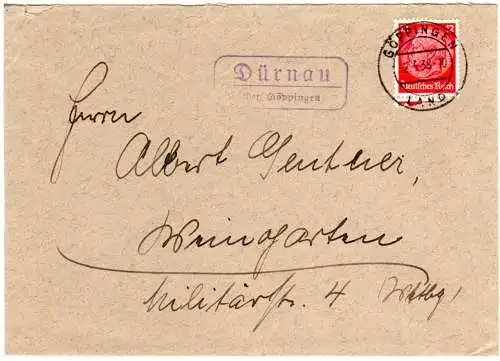 Dürnau
über Göppingen
GÖPPINGEN
LAND
12
Deutsches Reich
Herrn
Albert Gentner,
Weingarten
Militärstr. 4 Wttbg!